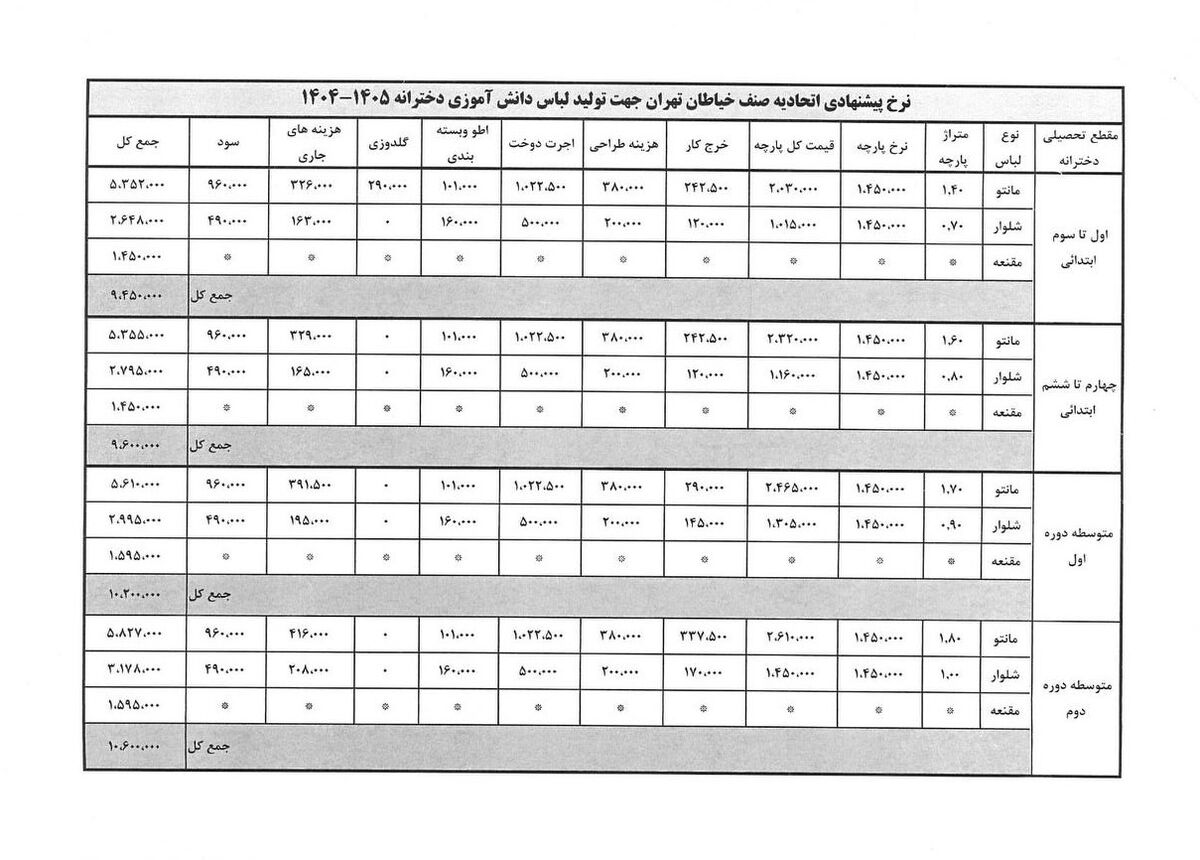 نرخ پیشنهادی اتحادیه صنف خیاطان تهران جهت تولید لباس دانش آموزی دخترانه ۱۴۰۵-۱۴۰۴
مقطع تحصیلی دخترانه | نوع لباس | متراژ پارچه | نرخ پارچه | قیمت کل پارچه | خرج کار | هزینه طراحی | اجرت دوخت | اطو وبسته بندی | گلدوزی | هزینه های جاری | سود | جمع کل
اول تا سوم ابتدائی
مانتو | ۱،۴۰ | ۱،۴۵۰،۰۰۰ | ۲،۰۳۰،۰۰۰ | ۲۴۲،۵۰۰ | ۳۸۰،۰۰۰ | ۱،۰۲۲،۵۰۰ | ۱۰۱،۰۰۰ | ۲۹۰،۰۰۰ | ۳۲۶،۰۰۰ | ۹۶۰،۰۰۰ | ۵،۳۵۲،۰۰۰
شلوار | ۰،۷۰ | ۱،۴۵۰،۰۰۰ | ۱،۰۱۵،۰۰۰ | ۱۲۰،۰۰۰ | ۲۰۰،۰۰۰ | ۵۰۰،۰۰۰ | ۱۶۰،۰۰۰ | ۰ | ۱۶۳،۰۰۰ | ۴۹۰،۰۰۰ | ۲،۶۴۸،۰۰۰
مقنعه | * | * | * | * | * | * | * | * | * | * | ۱،۴۵۰،۰۰۰
جمع کل | ۹،۴۵۰،۰۰۰
چهارم تا ششم ابتدائی
مانتو | ۱،۶۰ | ۱،۴۵۰،۰۰۰ | ۲،۳۲۰،۰۰۰ | ۲۴۲،۵۰۰ | ۳۸۰،۰۰۰ | ۱،۰۲۲،۵۰۰ | ۱۰۱،۰۰۰ | ۰ | ۳۲۹،۰۰۰ | ۹۶۰،۰۰۰ | ۵،۳۵۵،۰۰۰
شلوار | ۰،۸۰ | ۱،۴۵۰،۰۰۰ | ۱،۱۶۰،۰۰۰ | ۱۲۰،۰۰۰ | ۲۰۰،۰۰۰ | ۵۰۰،۰۰۰ | ۱۶۰،۰۰۰ | ۰ | ۱۶۵،۰۰۰ | ۴۹۰،۰۰۰ | ۲،۷۹۵،۰۰۰
مقنعه | * | * | * | * | * | * | * | * | * | * | ۱،۴۵۰،۰۰۰
جمع کل | ۹،۶۰۰،۰۰۰
متوسطه دوره اول
مانتو | ۱،۷۰ | ۱،۴۵۰،۰۰۰ | ۲،۴۶۵،۰۰۰ | ۲۹۰،۰۰۰ | ۳۸۰،۰۰۰ | ۱،۰۲۲،۵۰۰ | ۱۰۱،۰۰۰ | ۰ | ۳۹۱،۵۰۰ | ۹۶۰،۰۰۰ | ۵،۶۱۰،۰۰۰
شلوار | ۰،۹۰ | ۱،۴۵۰،۰۰۰ | ۱،۳۰۵،۰۰۰ | ۱۴۵،۰۰۰ | ۲۰۰،۰۰۰ | ۵۰۰،۰۰۰ | ۱۶۰،۰۰۰ | ۰ | ۱۹۵،۰۰۰ | ۴۹۰،۰۰۰ | ۲،۹۹۵،۰۰۰
مقنعه | * | * | * | * | * | * | * | * | * | * | ۱،۵۹۵،۰۰۰
جمع کل | ۱۰،۲۰۰،۰۰۰
متوسطه دوره دوم
مانتو | ۱،۸۰ | ۱،۴۵۰،۰۰۰ | ۲،۶۱۰،۰۰۰ | ۳۳۷،۵۰۰ | ۳۸۰،۰۰۰ | ۱،۰۲۲،۵۰۰ | ۱۰۱،۰۰۰ | ۰ | ۴۱۶،۰۰۰ | ۹۶۰،۰۰۰ | ۵،۸۲۷،۰۰۰
شلوار | ۱،۰۰ | ۱،۴۵۰،۰۰۰ | ۱،۴۵۰،۰۰۰ | ۱۷۰،۰۰۰ | ۲۰۰،۰۰۰ | ۵۰۰،۰۰۰ | ۱۶۰،۰۰۰ | ۰ | ۲۰۸،۰۰۰ | ۴۹۰،۰۰۰ | ۳،۱۷۸،۰۰۰
مقنعه | * | * | * | * | * | * | * | * | * | * | ۱،۵۹۵،۰۰۰
جمع کل | ۱۰،۶۰۰،۰۰۰